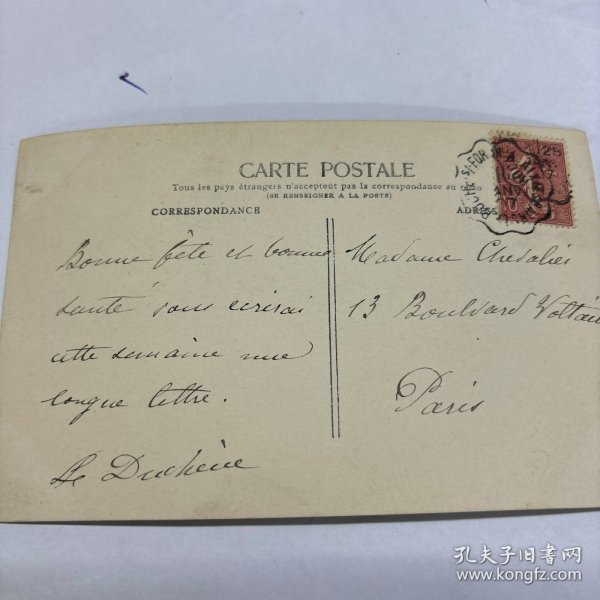 CARTE POSTALE
Tous les pays étrangers n'acceptent pas la correspondance au
(SE RENSEIGNER A LA POSTE)
CORRESPONDANCE
Bonne fête et bonne
santé vous écrirai
cette semaine une
longue lettre.
Le Duchêne
ADRESSE
Madame Chevalier
13 Boulvard Voltai
Paris
孔夫子旧书网
www.kongfz.com